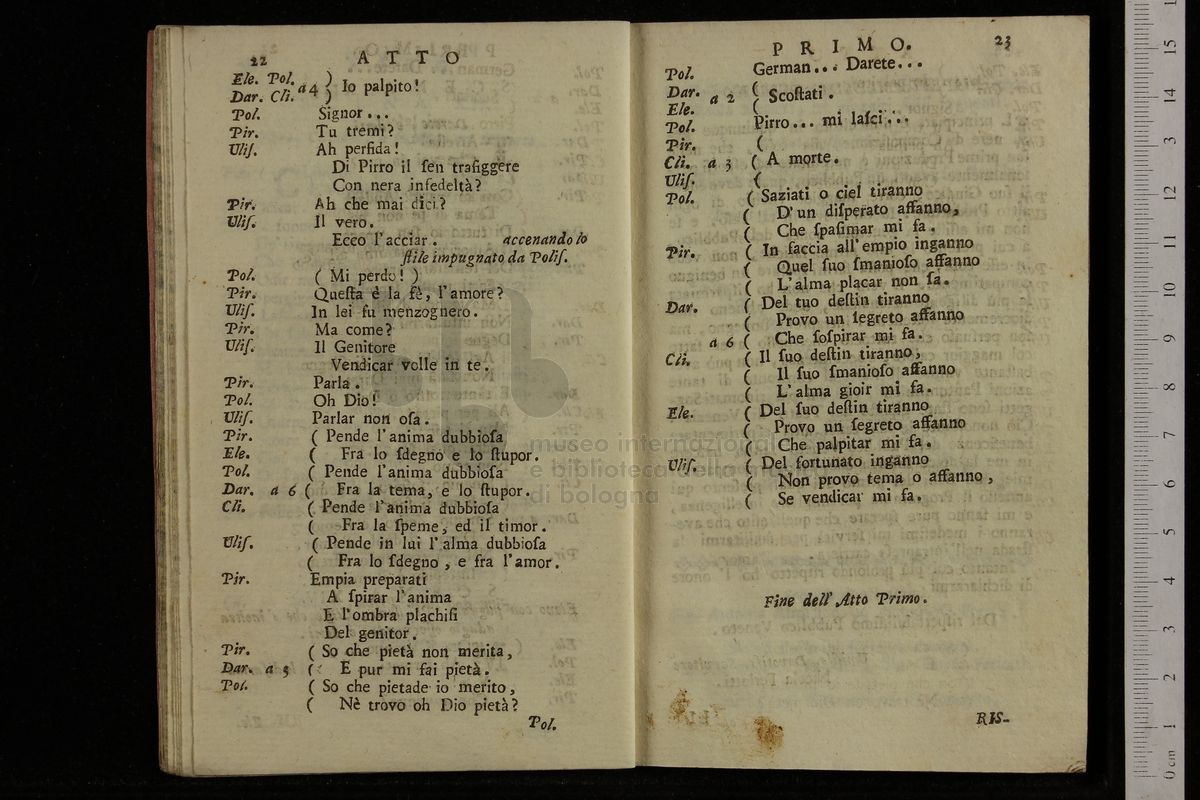 22 ATTO
Ele. Pol. )
a 4 ) Io palpito!
Dar. Cli. )
Pol. Signor...
Pir. Tu tremi?
Uliſ. Ah perfida!
Di Pirro il ſen trafiggere
Con nera infedeltà?
Pir. Ah che mai dici?
Uliſ. Il vero.
Ecco l'acciar. accenando lo
ſtile impugnato da Poliſ.
Pol. ( Mi perdo! )
Pir. Queſta è la fè, l'amore?
Uliſ. In lei fu menzognero.
Pir. Ma come?
Uliſ. Il Genitore
Vendicar volle in te.
Pir. Parla.
Pol. Oh Dio!
Uliſ. Parlar non oſa.
Pir. ( Pende l'anima dubbioſa
Ele. ( Fra lo ſdegno e lo ſtupor.
Pol. ( Pende l'anima dubbioſa
Dar. a 6 ( Fra la tema, e lo ſtupor.
Cli. ( Pende l'anima dubbioſa
( Fra la ſpeme, ed il timor.
Uliſ. ( Pende in lui l'alma dubbioſa
( Fra lo ſdegno, e fra l'amor.
Pir. Empia preparati
A ſpirar l'anima
E l'ombra plachiſi
Del genitor.
Pir. ( So che pietà non merita,
Dar. a 3 ( E pur mi fai pietà.
Pol. ( So che pietade io merito,
( Nè trovo oh Dio pietà?
Pol.
PRIMO. 23
Pol. German... Darete...
Dar. (
a 2 ( Scoſtati.
Ele. (
Pol. Pirro... mi laſci...
Pir. (
Cli. a 3 ( A morte.
Uliſ. (
Pol. ( Saziati o ciel tiranno
( D'un diſperato affanno,
( Che ſpaſimar mi fa.
Pir. ( In faccia all'empio inganno
( Quel ſuo ſmanioſo affanno
( L'alma placar non ſa.
Dar. ( Del tuo deſtin tiranno
( Provo un ſegreto affanno
a 6 ( Che ſoſpirar mi fa.
Cli. ( Il ſuo deſtin tiranno,
( Il ſuo ſmanioſo affanno
( L'alma gioir mi fa.
Ele. ( Del ſuo deſtin tiranno
( Provo un ſegreto affanno
( Che palpitar mi fa.
Uliſ. ( Del fortunato inganno
( Non provo tema o affanno,
( Se vendicar mi fa.
Fine dell' Atto Primo.
RIS-
museo internazionale
e biblioteca della
di bologna
0 cm 1 2 3 4 5 6 7 8 9 10 11 12 13 14 15